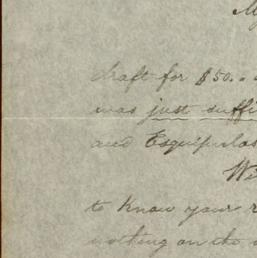 My
draft for $50.-
was just suffi
and Esquipulas
Wi
to know your r
nothing on the